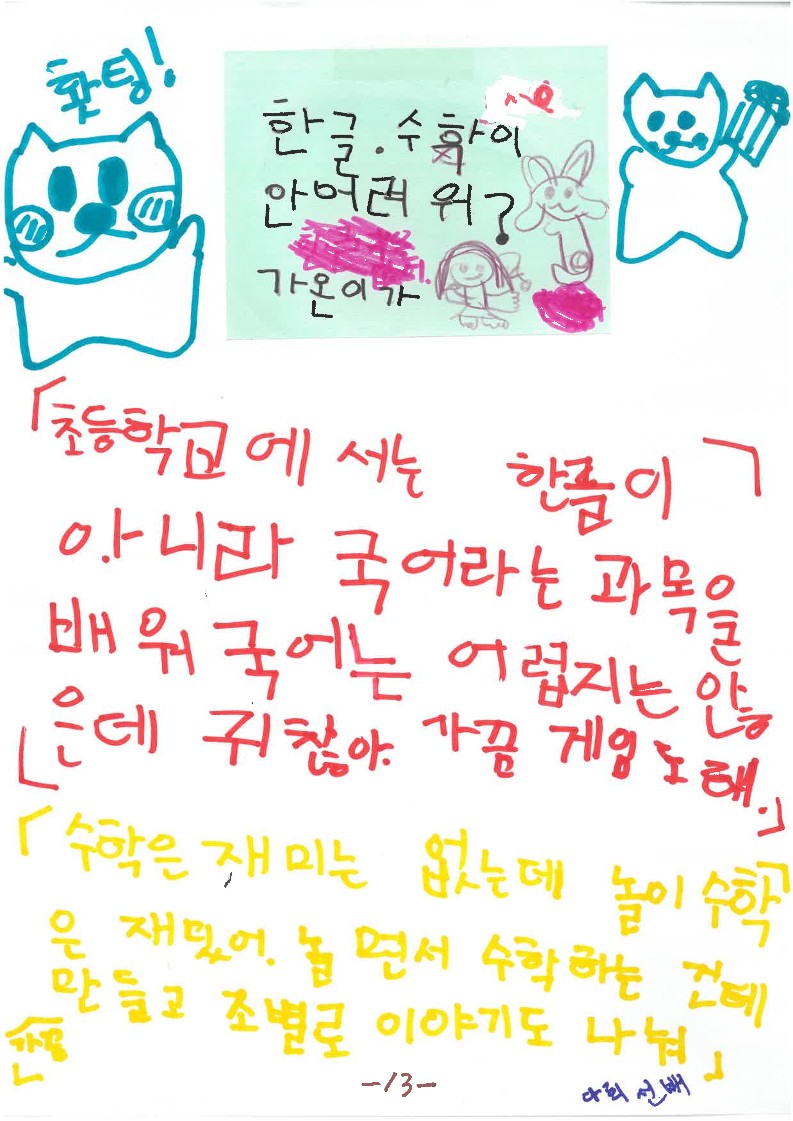 홧팅!
한글.수학이
안어려워?
가온이가
「초등학교에서는 한글이
아니라 국어라는 과목을
배워 국어는 어렵지는 않
은데 귀찮아. 가끔 게임도 해.」
「수학은 재미는 없는데 놀이수학
은 재밌어. 놀면서 수학하는 건데
만들고 조별로 이야기도 나눠」
가끔
-13-
선배